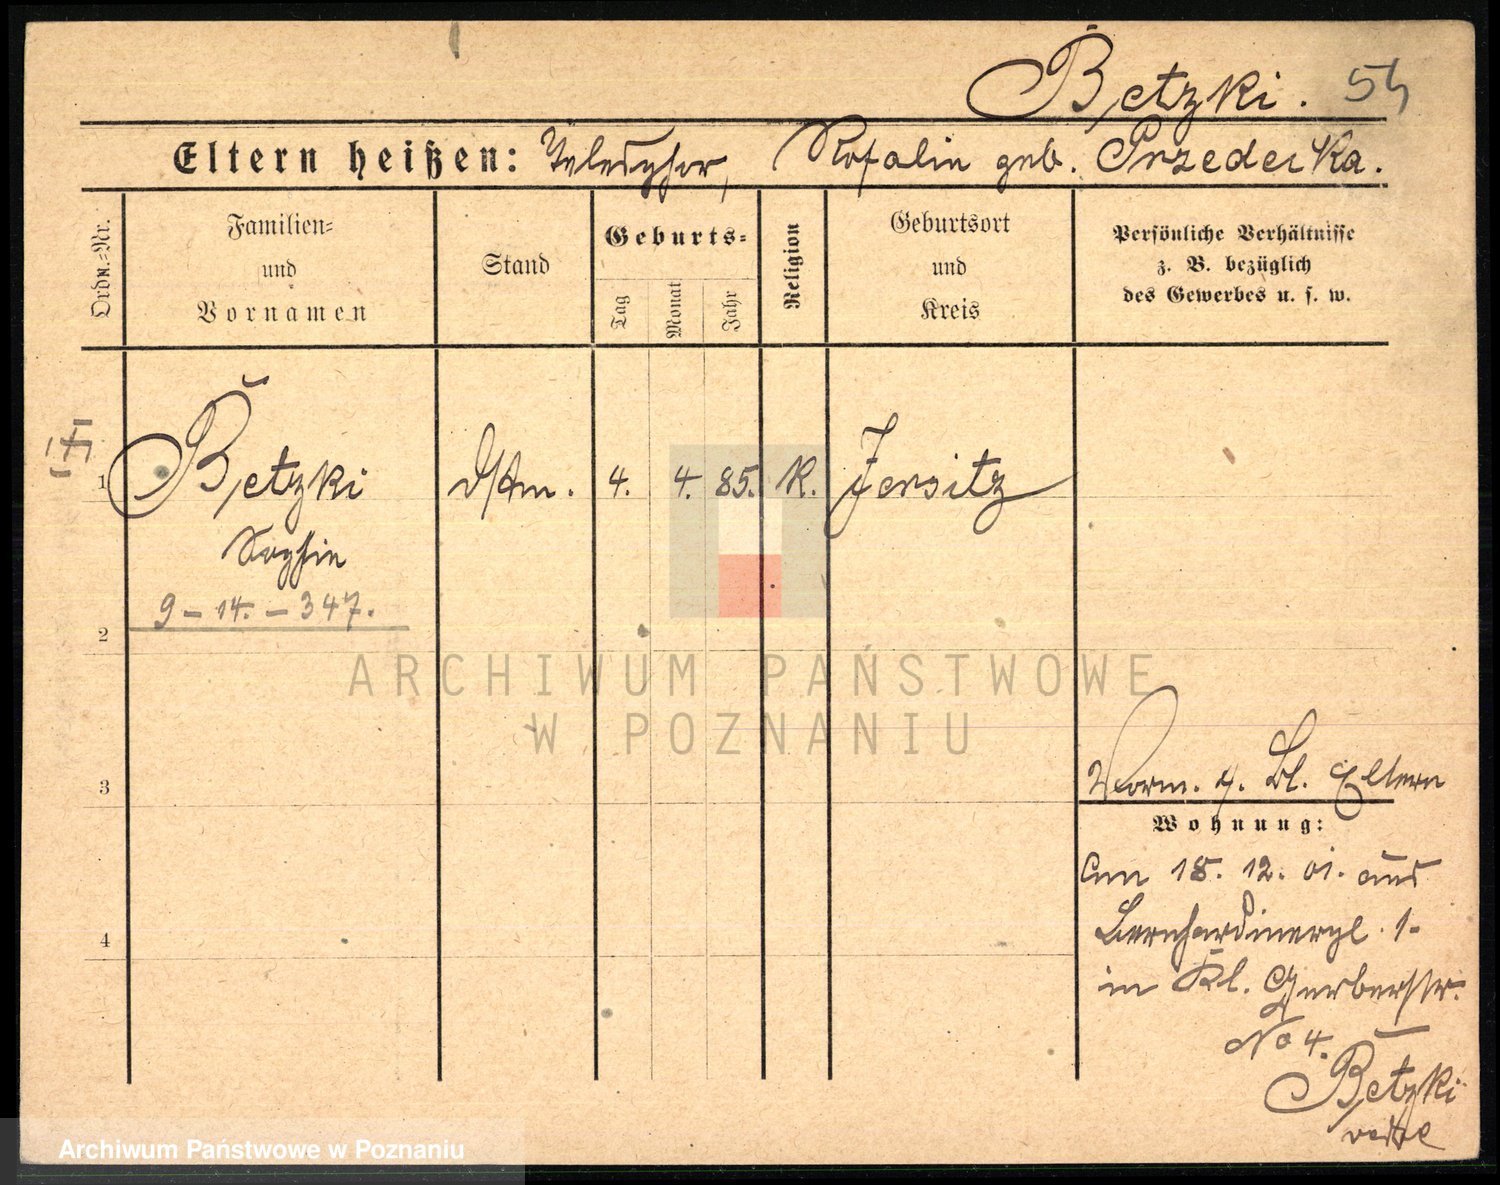 Betzki. 54
Eltern heißen: Telesphor, Rosalie geb. Przedecka.
Ordn.-Nr.
Familien- und Vornamen
Stand
Geburts-
Tag
Monat
Jahr
Religion
Geburtsort und Kreis
Persönliche Verhältnisse
z. B. bezüglich
des Gewerbes u. s. w.
1 Betzki 4. 4. 85. K. Jersitz
Sophie
9-14.-347.
2
ARCHIWUM PAŃSTWOWE
W POZNANIU
3
Vorm. s. Bl. Eltern
Wohnung:
am 18. 12. 01. aus
4
Bernhardinerpl. 1.
in Kl. Gerberstr.
No 4.
Betzki
Archiwum Państwowe w Poznaniu